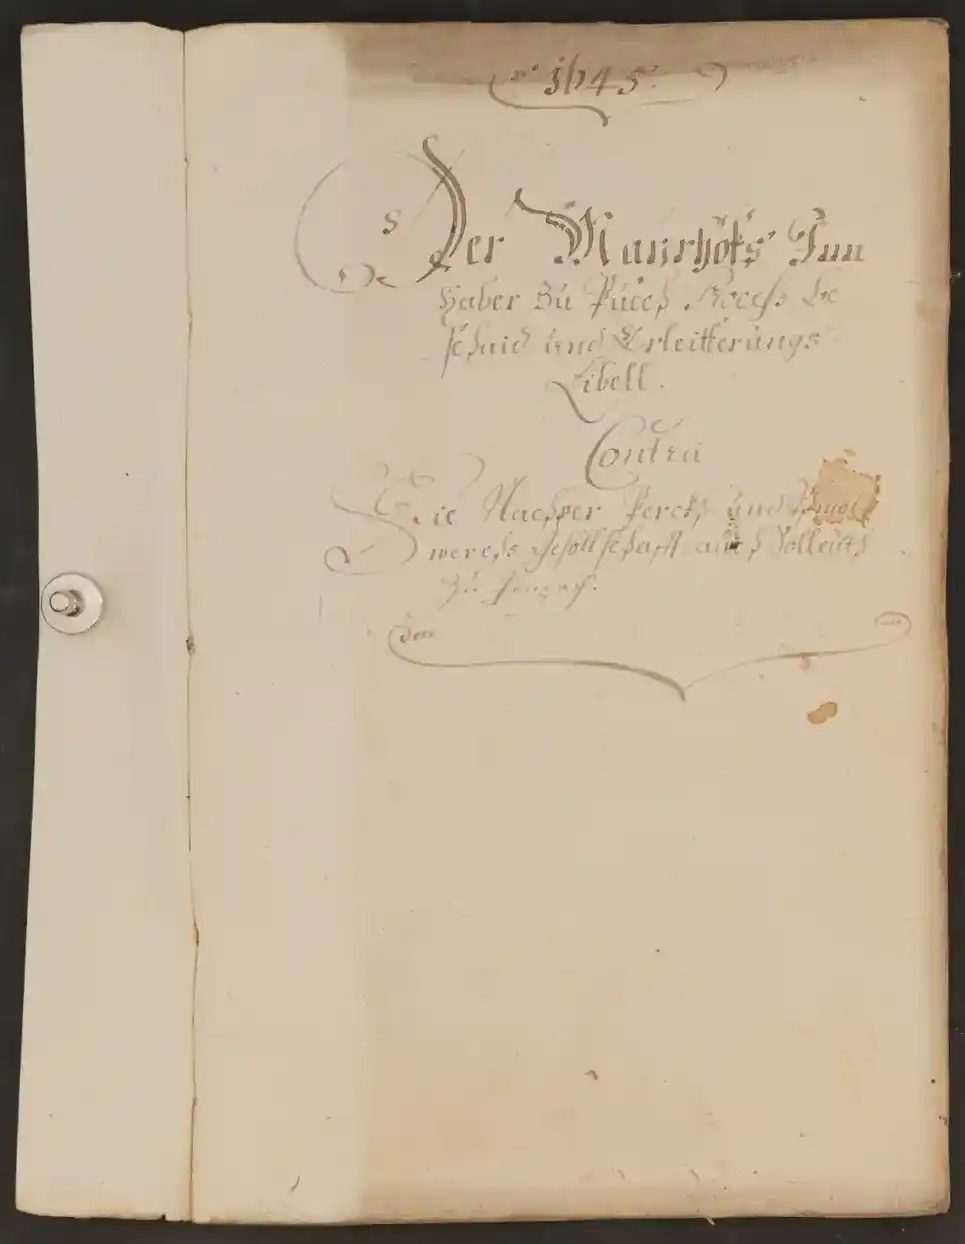 1645.
Der Mayrhofs Inn
haber zu Puech Recess Be
schaid und Erleitterungs
Libell.
Contra
Die Nachper Perckh und
werchs Gesöllschafft auch
zu